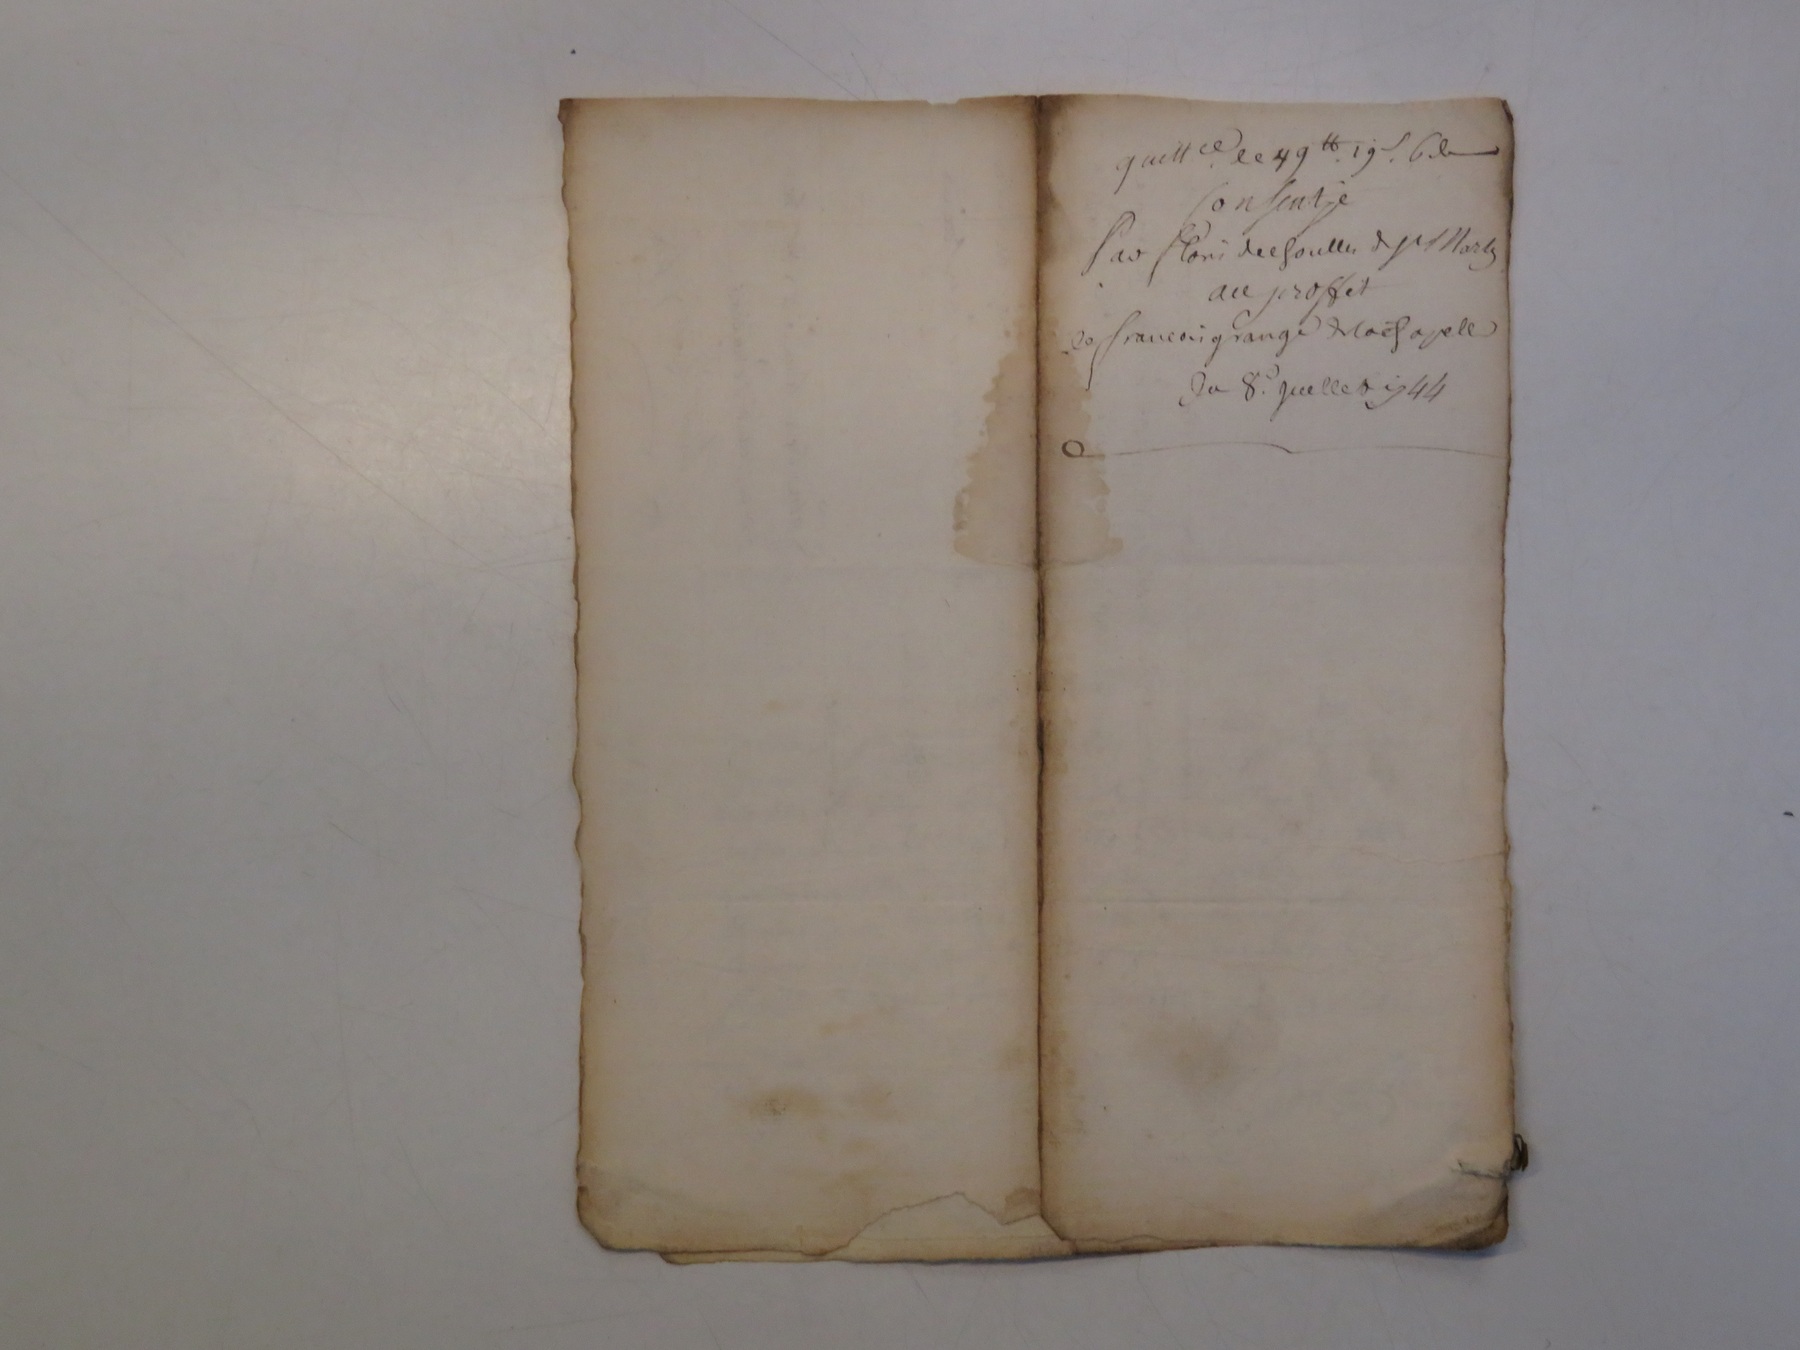 quitt.ce de 49 tt. 19 s. 6 d
Consentie
Par de St Martz
au proffit
de francois grange de la chapelle
Du 8.e juellet 1744